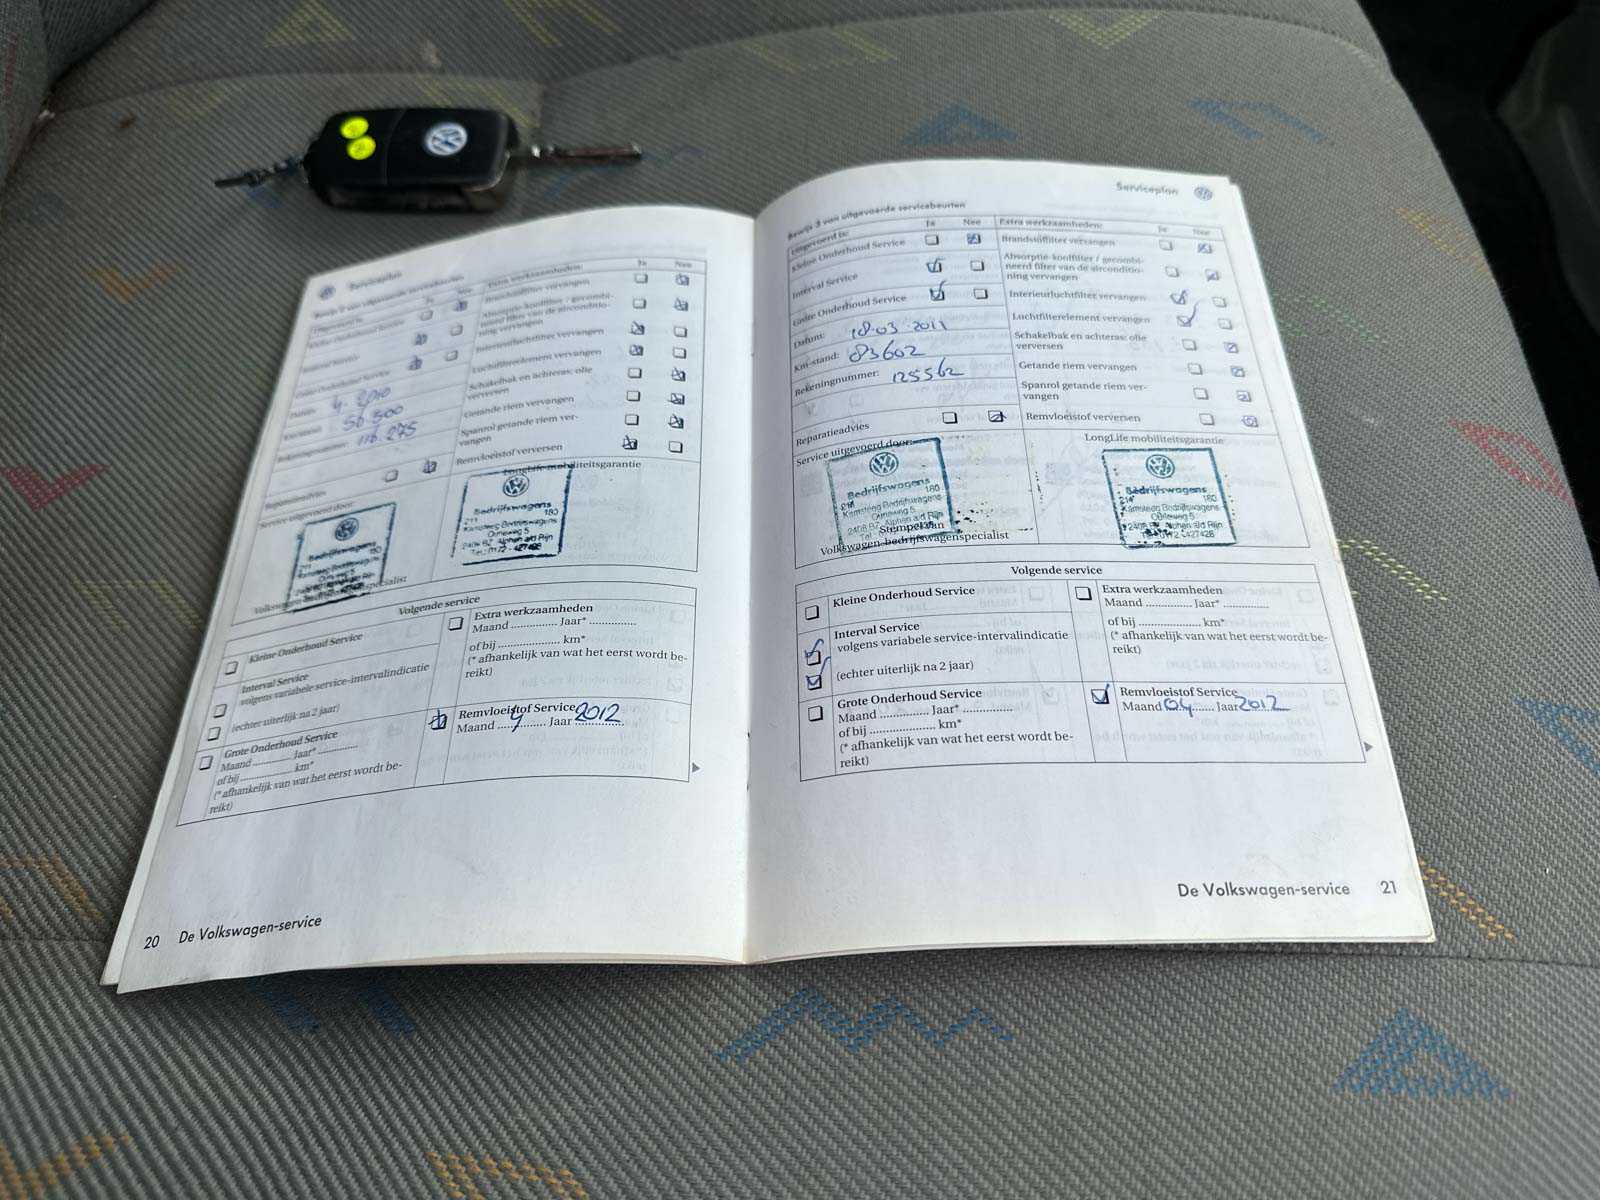 Serviceplan
Uitgevoerd is: Ja Nee Extra werkzaamheden: Ja Nee
Kleine Onderhoud Service
Interval Service
Grote Onderhoud Service
Datum: 4. 2010
Km-stand: 56 500
Rekeningnummer: 116.275
Reparatieadvies
Brandstoffilter vervangen
Absorptie-koolfilter / gecombi-
neerd filter van de airconditio-
ning vervangen
Interieurluchtfilter vervangen
Luchtfilterelement vervangen
Schakelbak en achteras: olie
verversen
Getande riem vervangen
Spanrol getande riem ver-
vangen
Remvloeistof verversen
Service uitgevoerd door:
LongLife mobiliteitsgarantie
Bedrijfswagens
211 180
Kamsteeg Bedrijfswagens
Oitneweg 5
Bedrijfswagens
211 180
Kamsteeg Bedrijfswagens
Oitneweg 5
2408 BZ Alphen a/d Rijn
Tel.: 0172 - 427428
Volgende service
Kleine Onderhoud Service
Interval Service
volgens variabele service-intervalindicatie
(echter uiterlijk na 2 jaar)
Grote Onderhoud Service
Maand .............. Jaar* ..............
of bij ...................... km*
(* afhankelijk van wat het eerst wordt be-
reikt)
Extra werkzaamheden
Maand .............. Jaar* ..............
of bij ...................... km*
(* afhankelijk van wat het eerst wordt be-
reikt)
Remvloeistof Service
Maand 4 Jaar 2012
20 De Volkswagen-service
Serviceplan
Bewijs 3 van uitgevoerde servicebeurten
Uitgevoerd is: Ja Nee Extra werkzaamheden: Ja Nee
Kleine Onderhoud Service
Interval Service
Grote Onderhoud Service
Datum: 18-03-2011
Km-stand: 83602
Rekeningnummer: 125562
Reparatieadvies
Brandstoffilter vervangen
Absorptie-koolfilter / gecombi-
neerd filter van de airconditio-
ning vervangen
Interieurluchtfilter vervangen
Luchtfilterelement vervangen
Schakelbak en achteras: olie
verversen
Getande riem vervangen
Spanrol getande riem ver-
vangen
Remvloeistof verversen
Service uitgevoerd door:
LongLife mobiliteitsgarantie
Bedrijfswagens
211 180
Kamsteeg Bedrijfswagens
Oitneweg 5
2408 BZ Alphen a/d Rijn
Stempel van
Volkswagen-bedrijfswagenspecialist
Bedrijfswagens
211 180
Kamsteeg Bedrijfswagens
Oitneweg 5
2408 BZ Alphen a/d Rijn
Tel. 0172 - 427428
Volgende service
Kleine Onderhoud Service
Interval Service
volgens variabele service-intervalindicatie
(echter uiterlijk na 2 jaar)
Grote Onderhoud Service
Maand .............. Jaar* ..............
of bij ...................... km*
(* afhankelijk van wat het eerst wordt be-
reikt)
Extra werkzaamheden
Maand .............. Jaar* ..............
of bij ...................... km*
(* afhankelijk van wat het eerst wordt be-
reikt)
Remvloeistof Service
Maand 04 Jaar 2012
De Volkswagen-service 21